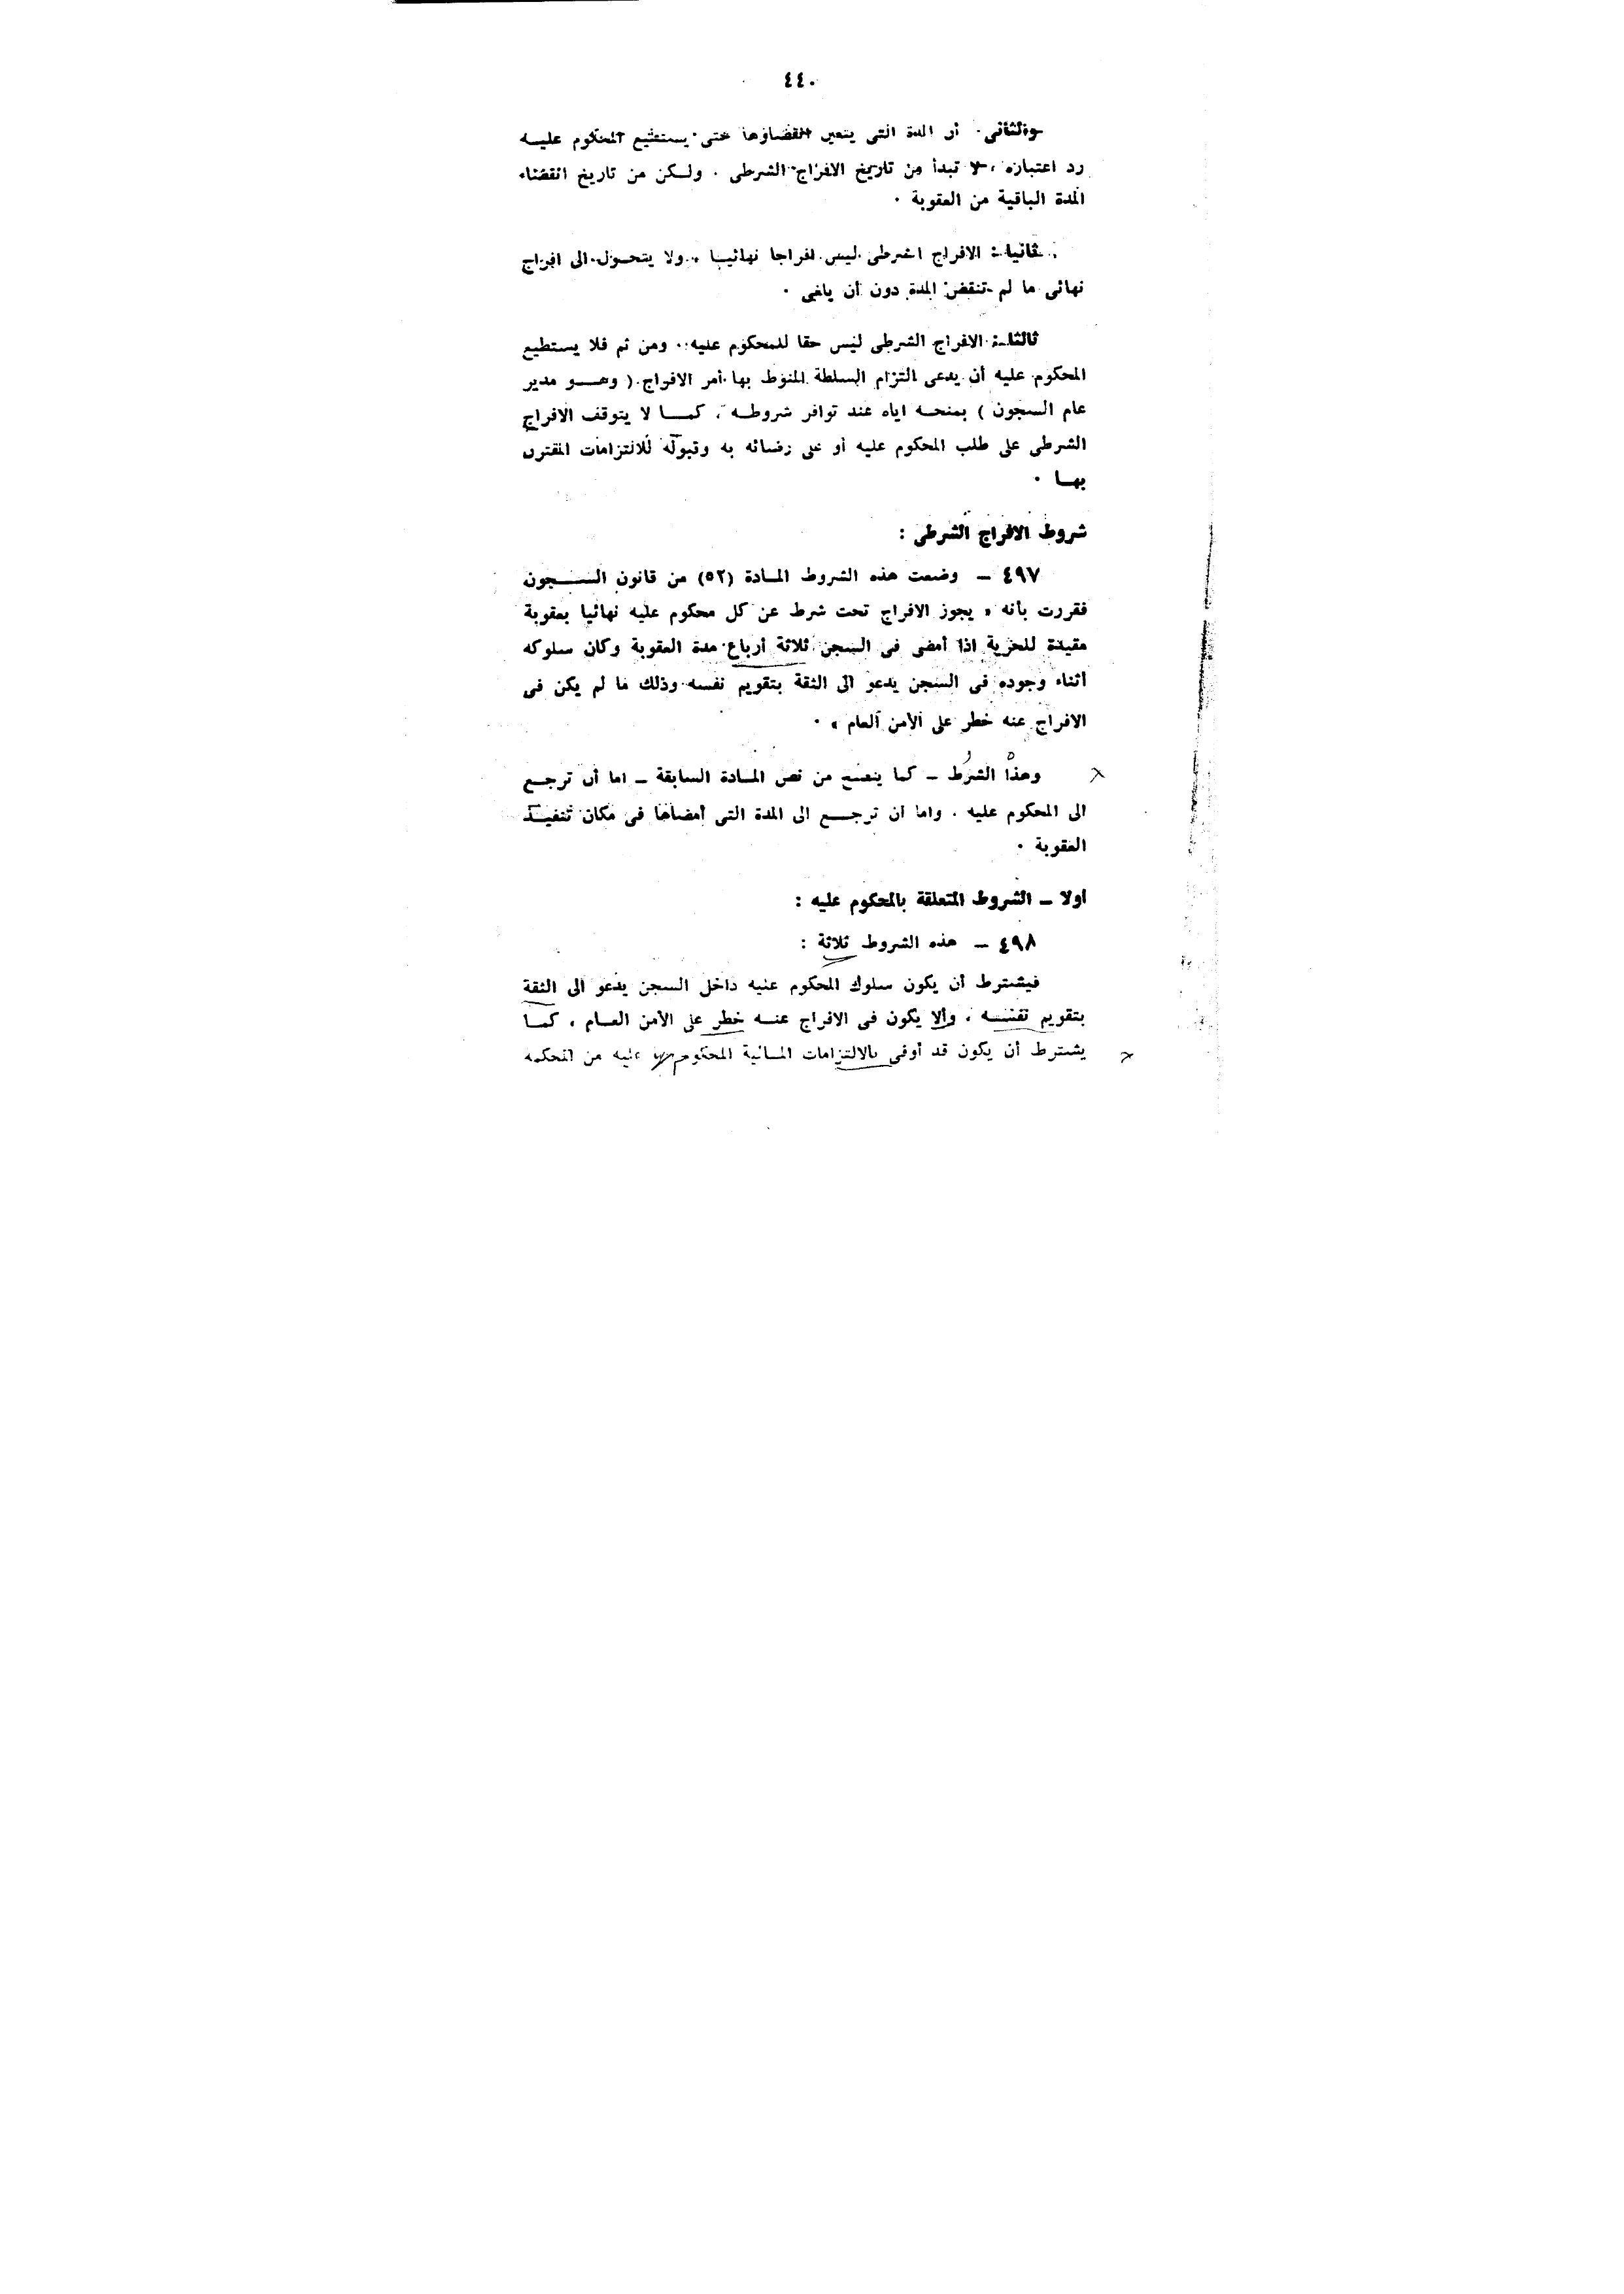 ٤٤٠
والثاني. أن المدة التى يتعين انقضاؤها حتى يستطيع المحكوم عليــه
رد اعتباره ، لا تبدأ من تاريخ الافراج الشرطى . ولـكن من تاريخ انقضاء
المدة الباقية من العقوبة .
ثانيا : الافراج الشرطى ليس افراجا نهائيــا ، ولا يتحــول الى افراج
نهائى ما لم تنقض المدة دون أن يلغى .
ثالثا : الافراج الشرطى ليس حقا للمحكوم عليه . ومن ثم فلا يستطيع
المحكوم عليه أن يدعى التزام السلطة المنوط بها أمر الافراج ( وهــو مدير
عام السجون ) بمنحــه اياه عند توافر شروطــه ، كمــا لا يتوقف الافراج
الشرطى على طلب المحكوم عليه أو على رضائه به وقبوله للالتزامات المقترن
بهــا .
شروط الافراج الشرطى :
٤٩٧ ــ وضعت هذه الشروط المــادة (٥٢) من قانون الســجون
فقررت بأنه « يجوز الافراج تحت شرط عن كل محكوم عليه نهائيا بعقوبة
مقيدة للحرية اذا أمضى فى السجن ثلاثة أرباع مدة العقوبة وكان سلوكه
أثناء وجوده فى السجن يدعو الى الثقة بتقويم نفسه وذلك ما لم يكن فى
الافراج عنه خطر على الأمن العام » .
وهذا الشرط ــ كما يتضح من نص المــادة السابقة ــ اما أن ترجــع
الى المحكوم عليه . واما أن ترجــع الى المدة التى أمضاها فى مكان تنفيــذ
العقوبة .
اولا ــ الشروط المتعلقة بالمحكوم عليه :
٤٩٨ ــ هذه الشروط ثلاثة :
فيشترط أن يكون سلوك المحكوم عليه داخل السجن يدعو الى الثقة
بتقويم نفســه ، وألا يكون فى الافراج عنــه خطر على الأمن العــام ، كمــا
يشترط أن يكون قد أوفى بالالتزامات المــالية المحكوم بها عليه من المحكمة